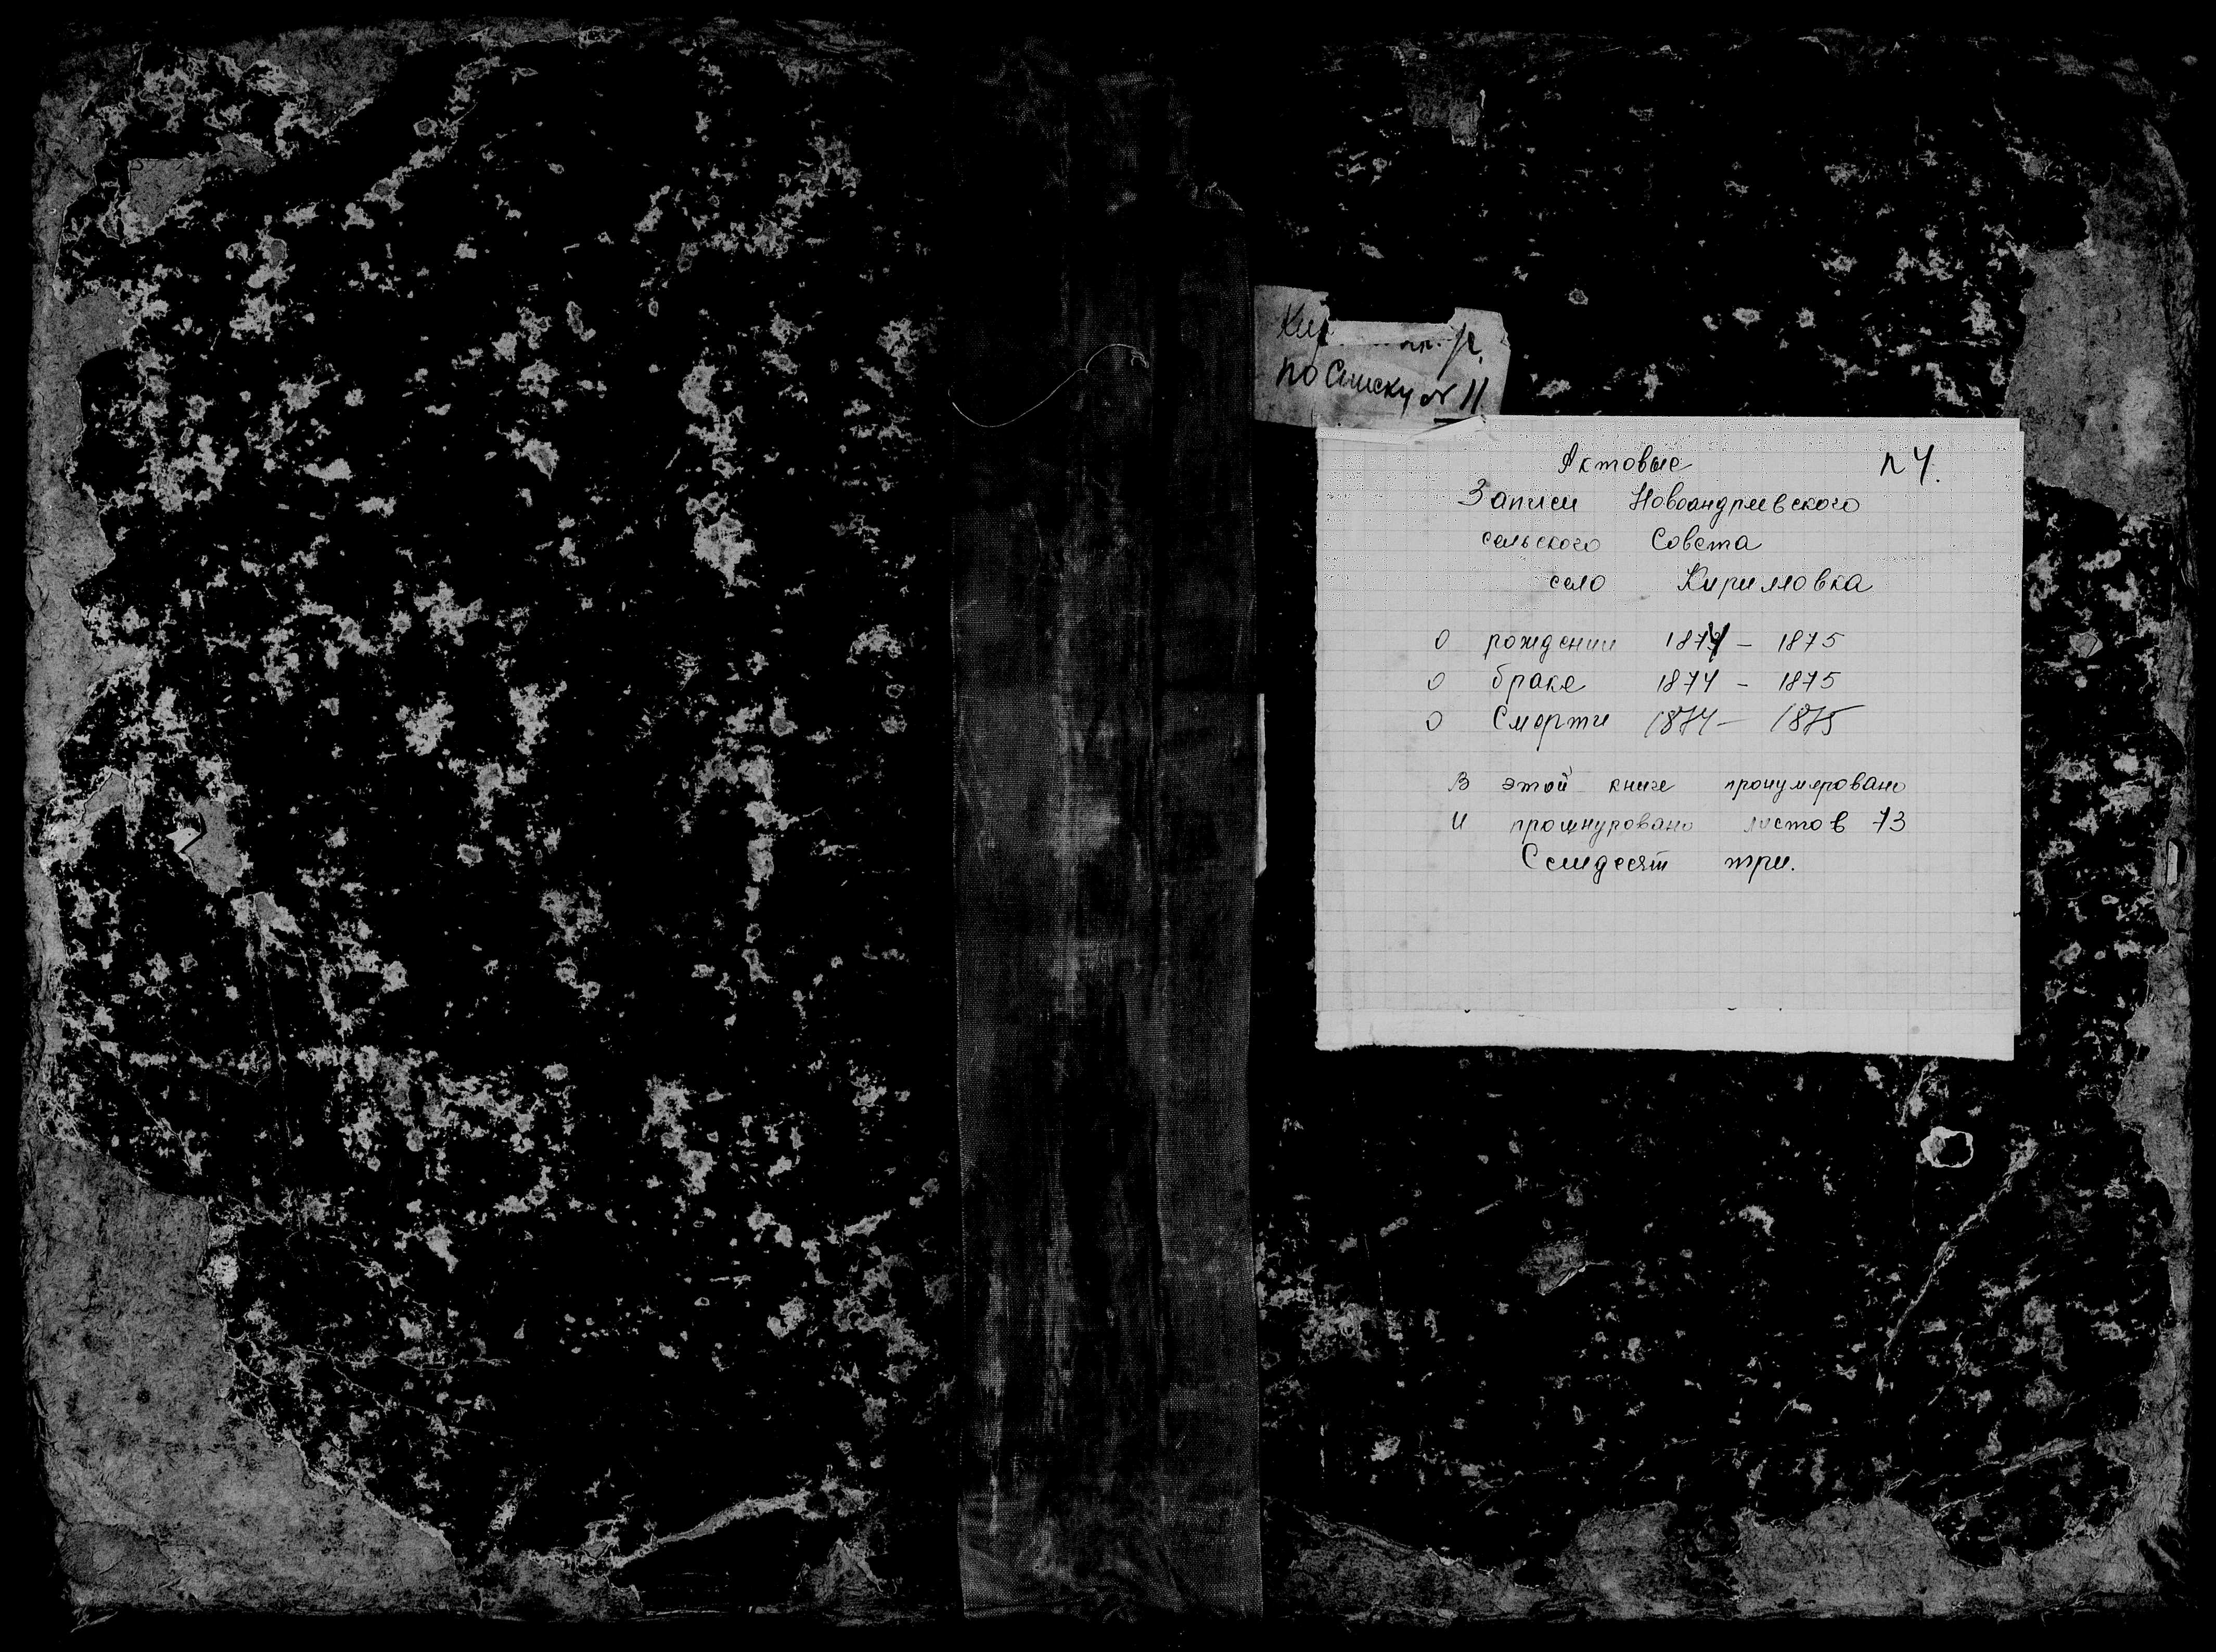 по Списку № 11
Актовые
Записи Новоандреевского
сельского Совета
село Кирилловка
о рождении 1874 – 1875
о браке 1874 – 1875
о Смерти 1874 – 1875
В этой книге пронумеровано
и прошнуровано листов 73
Семдесят три.